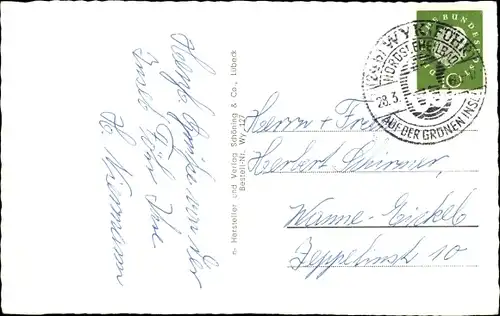 Herzl. Grüße von der
Insel Föhr Ihre
H. Wiesmann
n. Hersteller und Verlag Schöning & Co., Lübeck
Bestell-Nr. Wy. 127
BUNDESPOST
(24b) WYK (FÖHR)
NORDSEEHEILBAD
28.3.
AUF DER GRÜNEN INSEL
Herrn + Frau
Herbert Schirmer,
Wanne-Eickel
Zeppelinst 10